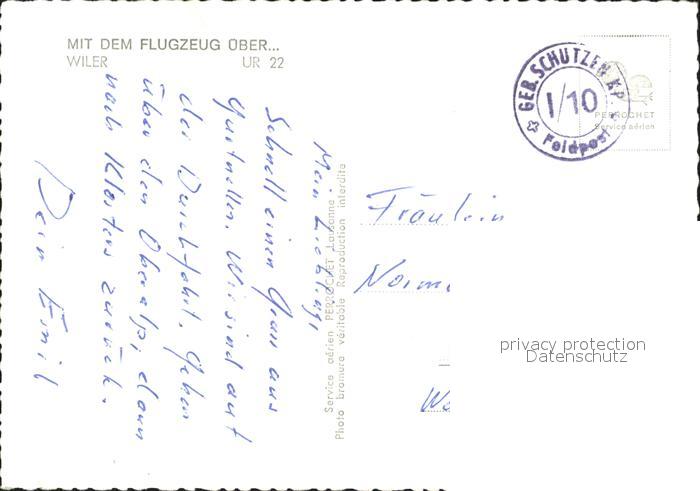 MIT DEM FLUGZEUG ÜBER...
WILER UR 22
Mein Liebling,
Schnell einen Gruss aus
Gurtnellen. Wir sind auf
der Durchfahrt. Gehen
über den Oberalp, dann
nach Klosters zurück.
Dein Emil
Service aérien PERROCHET Lausanne
Photo bromure véritable Reproduction interdite
GEB. SCHUTZEN KP.
I/10
Feldpost
PERROCHET
Service aérien
Fräulein
privacy protection
Datenschutz